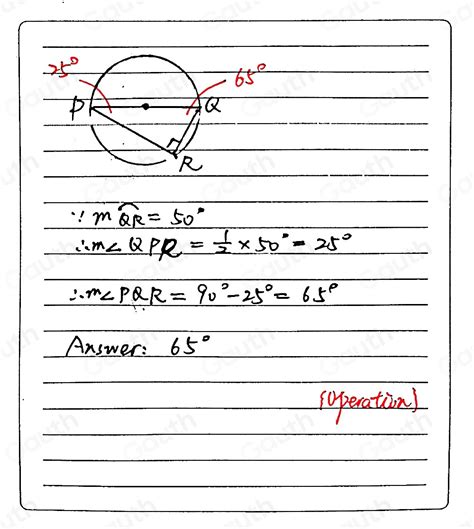 25° 65°
P Q
R
∵ m QR = 50°
∴ m∠QPR = 1/2 × 50° = 25°
∴ m∠PQR = 90° - 25° = 65°
Answer: 65°
(Operation)
Gauth